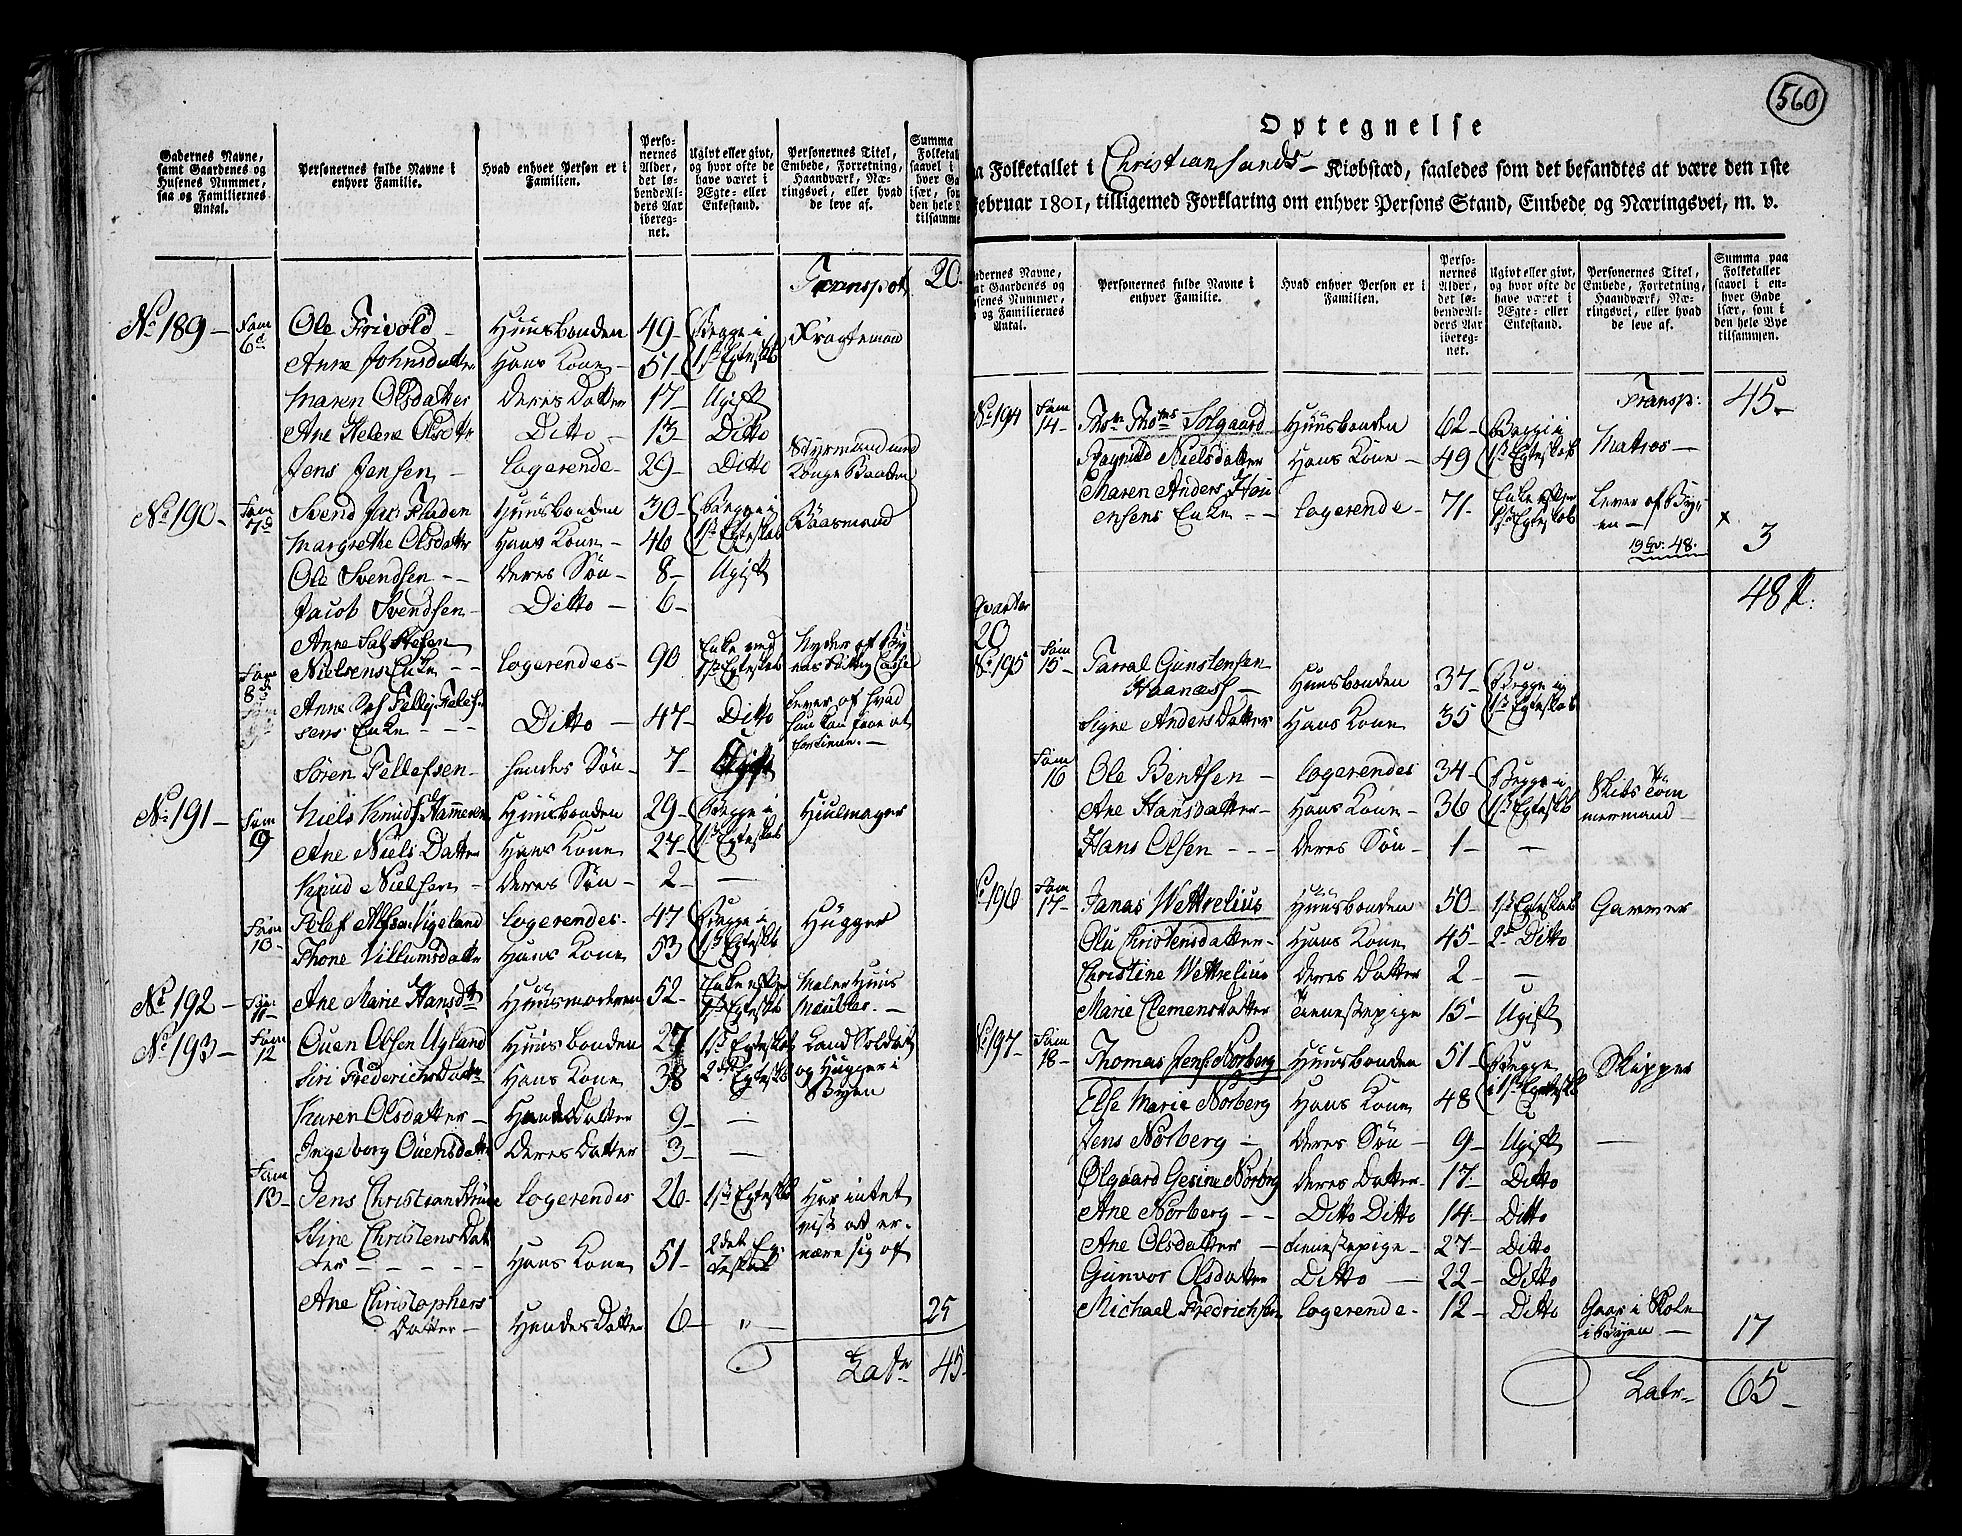 Gadernes Navne, samt Gaardenes og Husenes Nummer, saa og Familiernes Antal.
Personernes fulde Navne i enhver Familie.
Hvad enhver Person er i Familien.
Personernes Alder, det løbende Alders Aar iberegnet.
Ugivt eller givt, og hvor ofte de have været i Ægte- eller Enkestand.
Personernes Titel, Embede, Forretning, Haandværk, Næringsvei, eller hvad de leve af.
Transport 20
No 189 – Fam 6te Ole Frivold – Huusbonden 49 – Begge i Fragtemand
Anne Johnsdatter Hans Kone – 51 – 1ste Egteskab
Maren Olsdatter Deres Datter 17 – Ugift
Ane Helene Olsdtr Ditto – 13 – Ditto
Jens Jensen – logerende – 29 – Ditto Styrmand med Konge Baaden
No 190 – Fam 7de Svend Jac Fladen Huusbonden 30 – Begge i Baasmand
Margrethe Olsdattr Hans Kone – 46 1ste Egteskab
Ole Svendsen – – Deres Søn – 8 – Ugift
Jacob Svendsen – Ditto – 6 –
Fam 8de Anne
Nielsens Enke – – logerendes – 90 Enke ved 1ste Egteskab Nyder af Byens Fattig Casse
Anne
sens Enke – – – Ditto – 47 – Ditto Lever af hvad hun kan fortiene. –
Søren Tellefsen – hendes Søn – 7 – Ugift
No 191 – Fam 9 Niels Knuds. Hammeren Huusbonden 29 – Begge i Hiulmager
Ane Niels Datter Hans Kone 27 – 1ste Egteskab
Knud Nielsen – Deres Søn – 2 – —
Fam 10 – Telef Alfsen Vigeland logerendes – 47 Begge i Hugger
Thone Villumsdatter Hans Kone 53 1ste Egteskb
No 192 – Fam 11 – Ane Marie Hansdtr Huusmoderen 52 – Enke efter 1ste Egteskb Maler Huus
No 193 – Fam 12 Ouen Olsen Ugland Huusbonden 27 1ste Egteskab Land Soldat
Siri Frederichsdatter Hans Kone 38 2det Egteskb og Hugger i Byen
Karen Olsdatter – Hendes Datter 9 – —
Ingeborg Ouensdatter Deres Datter 3 – —
Fam 13 – Jens Christian logerendes 26 – 1ste Egteskb Har intet
Stine Christens Datter – – – – – Hans Kone 51 – 2det Egteskab vist at ernære sig af
Ane Christophers Datter – Hendes Datter 6 – " – 25
Latr 45 –
560
Optegnelse
Folketallet i Christiansands – Kiøbstæd, saaledes som det befandtes at være den 1ste
Februar 1801, tilligemed Forklaring om enhver Persons Stand, Embede og Næringsvei, m. v.
Personernes fulde Navne i enhver Familie.
Hvad enhver Person er i Familien.
Personernes Alder, det løbende Alders Aar iberegnet.
Ugivt eller givt, og hvor ofte de have været i Ægte- eller Enkestand.
Personernes Titel, Embede, Forretning, Haandværk, Næringsvei, eller hvad de leve af.
Summa paa Folketallet saavel i enhver Gade især, som i den hele Bye tilsammen.
Transp: 45 –
No 194 Fam 14 – Thom Thoms Solgaard Huusbonden 62 – Begge i Matros –
Ragnild Nielsdatter Hans Kone – 49 1ste Egteskab
Maren Anders
ensens Enke – – logerende – 71 – Enke efter 1ste Egteskab Lever af Byen – x 3
19 Qv: 48.
48 p:
Qvarter 20
No 195 Fam 15 – Tarral Gunstensen
Haanæss – Huusbonden 37 – Begge i
Signe Anders Datter Hans Kone 35 1ste Egteskab
Fam 16 Ole Bentsen – logerendes 34 – Begge i Skibs Tømmermand
Ane Hansdatter – Hans Kone – 36 1ste Egteskb
Hans Olsen – – – Deres Søn – 1 – —
No 196 Fam 17 – Jonas Wettrelius Huusbonden 50 – 1ste Egteskab Garver
Olu Christensdatter – Hans Kone 45 – 2det Ditto
Christine Wettrelius Deres Datter 2 – —
Marie ClemensDatter Tienestepige 15 – Ugift
No 197 – Fam 18 – Thomas Jens. Norberg Huusbonden 51 – Begge Skipper
Else Marie Norberg Hans Kone 48 i 1ste Egteskb
Jens Norberg – Deres Søn – 9 – Ugift —
Ølgaard Gesine Norberg Deres Datter – 17 – Ditto
Ane Norberg – – Ditto Ditto 14 – Ditto
Ane Olsdatter – tienestepige – 27 – Ditto
Gunvor Olsdatter Ditto — 22 – Ditto
Michael Fredrichsen logerende – 12 – Ditto Gaar i Skole i Byen – 17
Latr – 65 –